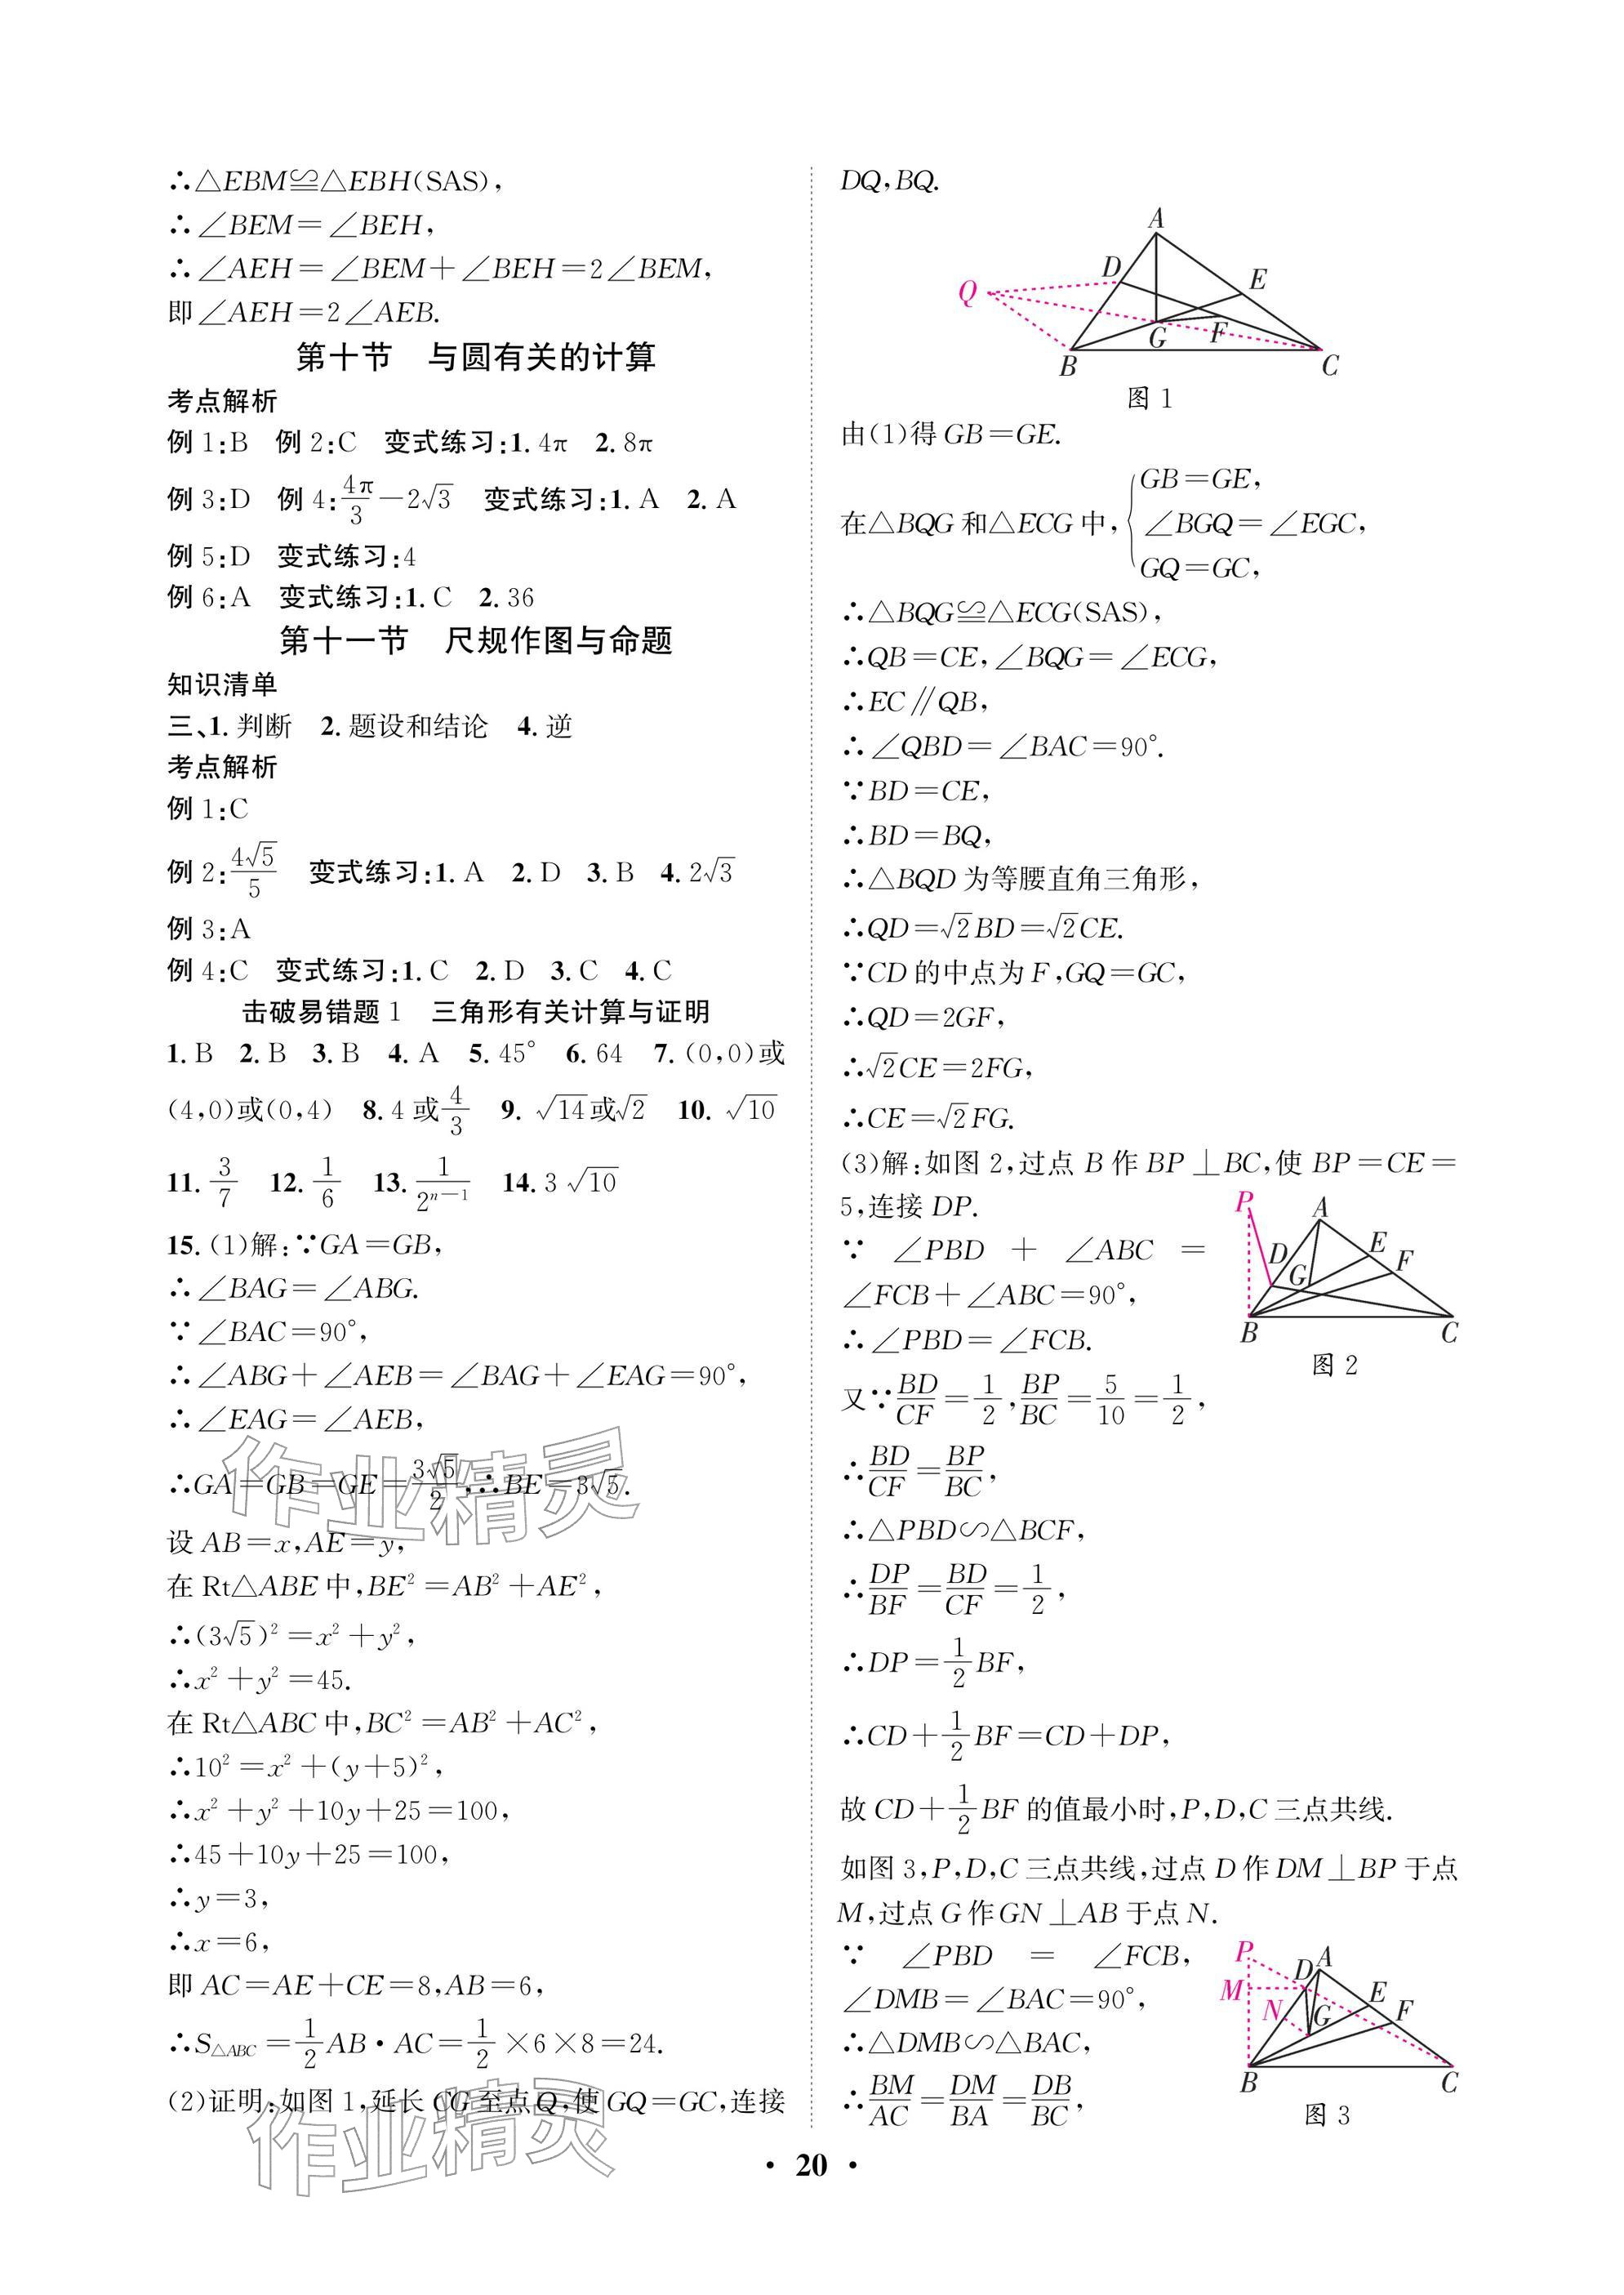 ∴△EBM≌△EBH(SAS),
∴∠BEM=∠BEH,
∴∠AEH=∠BEM+∠BEH=2∠BEM,
即∠AEH=2∠AEB.
第十节 与圆有关的计算
考点解析
例1:B 例2:C 变式练习:1. 4π 2. 8π
例3:D 例4:4π/3-2√3 变式练习:1. A 2. A
例5:D 变式练习:4
例6:A 变式练习:1. C 2. 36
第十一节 尺规作图与命题
知识清单
三、1. 判断 2. 题设和结论 4. 逆
考点解析
例1:C
例2:4√5/5 变式练习:1. A 2. D 3. B 4. 2√3
例3:A
例4:C 变式练习:1. C 2. D 3. C 4. C
击破易错题1 三角形有关计算与证明
1. B 2. B 3. B 4. A 5. 45° 6. 64 7. (0,0)或
(4,0)或(0,4) 8. 4或4/3 9. √14或√2 10. √10
11. 3/7 12. 1/6 13. 1/2ⁿ⁻¹ 14. 3√10
15. (1)解:∵GA=GB,
∴∠BAG=∠ABG.
∵∠BAC=90°,
∴∠ABG+∠AEB=∠BAG+∠EAG=90°,
∴∠EAG=∠AEB,
∴GA=GB=GE=3√5/2,∴BE=3√5.
设AB=x,AE=y,
在Rt△ABE中,BE²=AB²+AE²,
∴(3√5)²=x²+y²,
∴x²+y²=45.
在Rt△ABC中,BC²=AB²+AC²,
∴10²=x²+(y+5)²,
∴x²+y²+10y+25=100,
∴45+10y+25=100,
∴y=3,
∴x=6,
即AC=AE+CE=8,AB=6,
∴S△ABC=1/2AB·AC=1/2×6×8=24.
(2)证明:如图1,延长CG至点Q,使GQ=GC,连接
DQ,BQ.
A
D
E
Q
G
F
B
C
图1
由(1)得GB=GE.
在△BQG和△ECG中,{GB=GE,
∠BGQ=∠EGC,
GQ=GC,
∴△BQG≌△ECG(SAS),
∴QB=CE,∠BQG=∠ECG,
∴EC∥QB,
∴∠QBD=∠BAC=90°.
∵BD=CE,
∴BD=BQ,
∴△BQD为等腰直角三角形,
∴QD=√2BD=√2CE.
∵CD的中点为F,GQ=GC,
∴QD=2GF,
∴√2CE=2FG,
∴CE=√2FG.
(3)解:如图2,过点B作BP⊥BC,使BP=CE=
5,连接DP.
∵∠PBD+∠ABC=
∠FCB+∠ABC=90°,
∴∠PBD=∠FCB.
P
A
D
E
G
F
B
C
图2
又∵BD/CF=1/2,BP/BC=5/10=1/2,
∴BD/CF=BP/BC,
∴△PBD∽△BCF,
∴DP/BF=BD/CF=1/2,
∴DP=1/2BF,
∴CD+1/2BF=CD+DP,
故CD+1/2BF的值最小时,P,D,C三点共线.
如图3,P,D,C三点共线,过点D作DM⊥BP于点
M,过点G作GN⊥AB于点N.
∵∠PBD=∠FCB,
∠DMB=∠BAC=90°,
∴△DMB∽△BAC,
∴BM/AC=DM/BA=DB/BC,
P
A
D
M
E
N
G
F
B
C
图3
作业精灵
作业精灵
· 20 ·